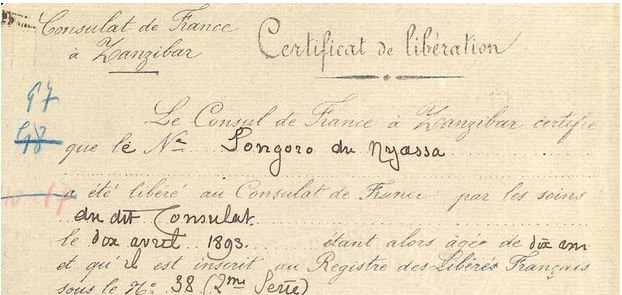 Consulat de France
à Zanzibar
Certificat de libération
97
98
Le Consul de France à Zanzibar certifie
que le Né Songoro du Nyassa
a été libéré au Consulat de France par les soins
du dit Consulat
le dix avril 1893. étant alors âgé de dix ans
et qu'il est inscrit au Registre des Libérés Français
sous le No. 38 (2me Serie)